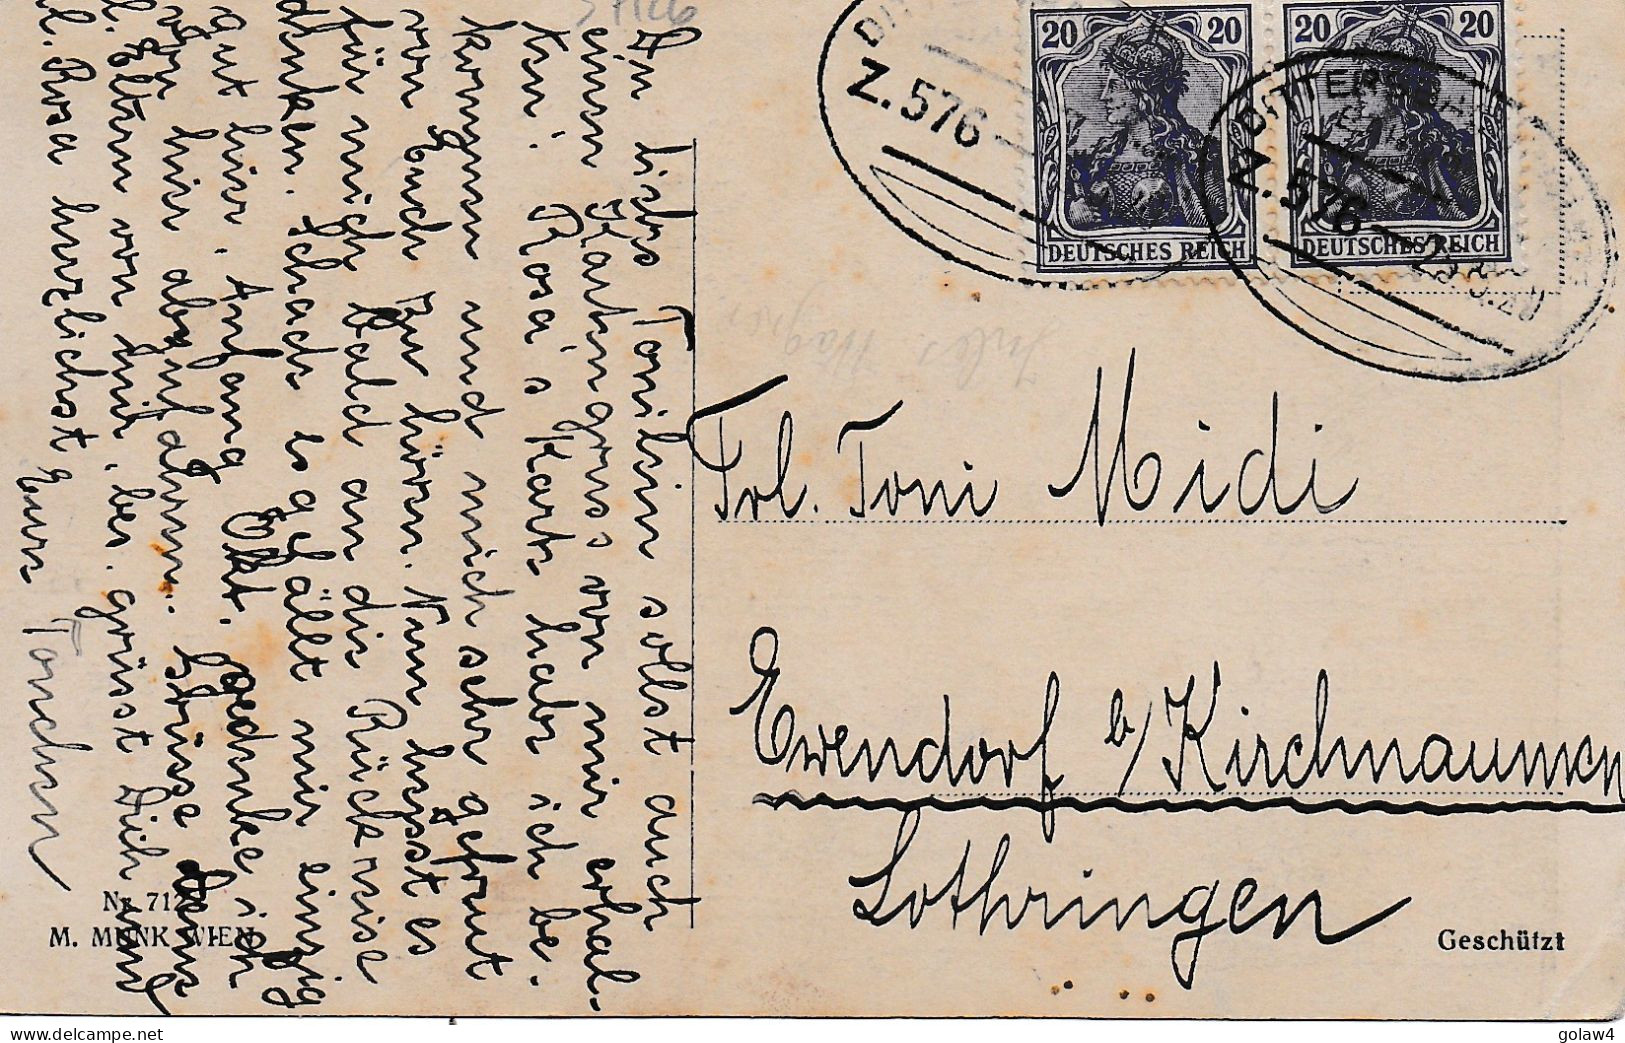 In liebes Tonilein sollst auch
einen Kartengruss von mir erhal-
ten. Rosa's Karte habe ich be.
kommen und mich sehr gefreut
von Euch zu hören. Nun heisst es
für mich bald an die Rückreise
denken. Schade es gefällt mir einzig
gut hier. Anfang Okt. gedenke ich
von hier abzufahren. Grüsse Deine
l. Eltern von mir, bes. grüsst Dich und
l. Rosa herzlichst Euer Tonchen
Nr. 712
M. MUNK WIEN
20 20
DEUTSCHES REICH
20 20
DEUTSCHES REICH
Z. 576
DITTERSB
Z. 576
Frl. Toni Midi
Ewendorf b/ Kirchnaumen
Lothringen
Geschützt
www.delcampe.net
golaw4